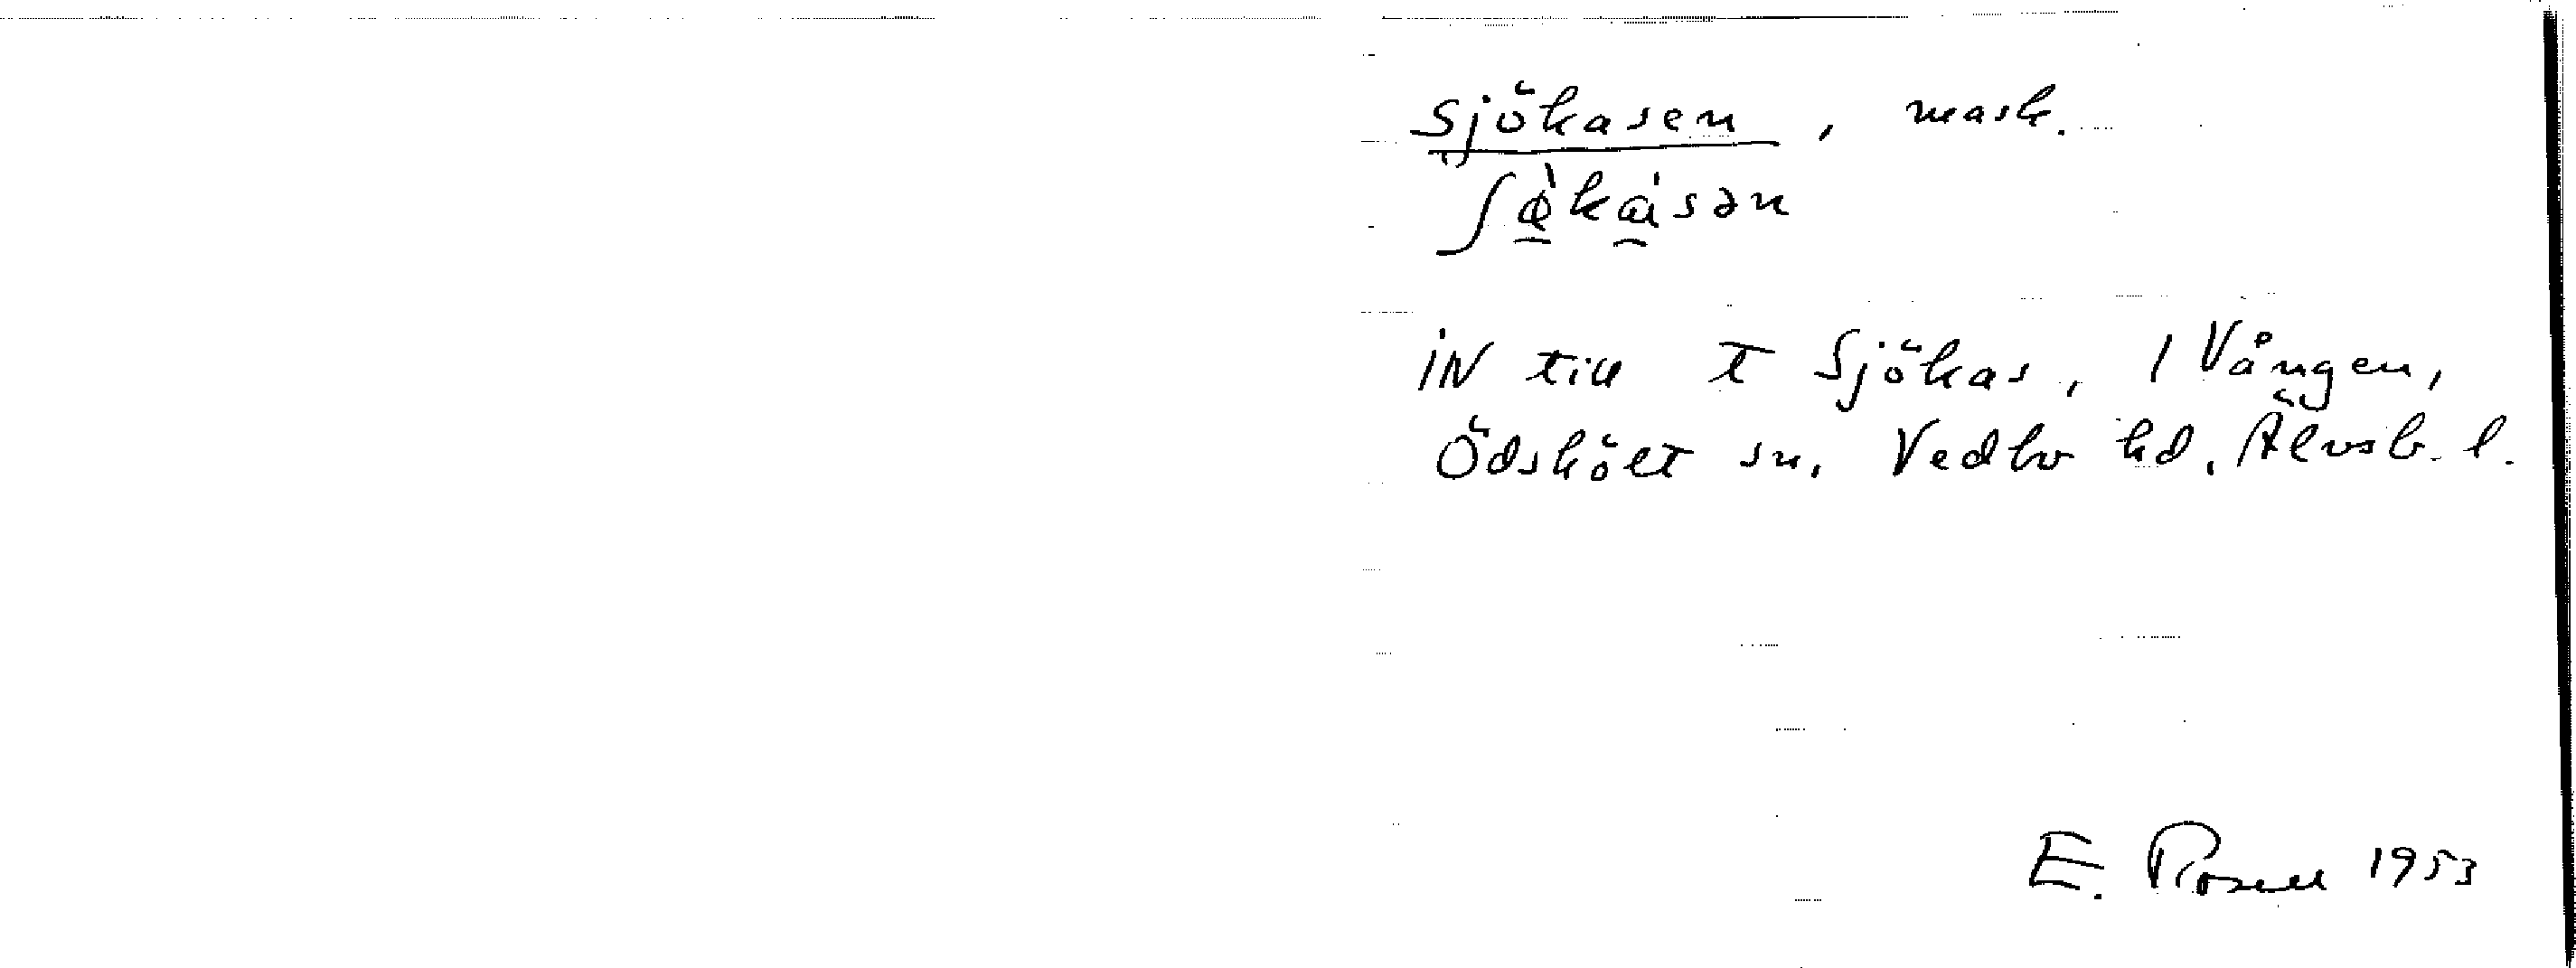 Sjökasen, mask.
ʃø̀kásən
IN till t Sjökas, 1 Vången,
Ödskölt sn, Vedbo hd, Älvsb. l.
E. Rosell 1953